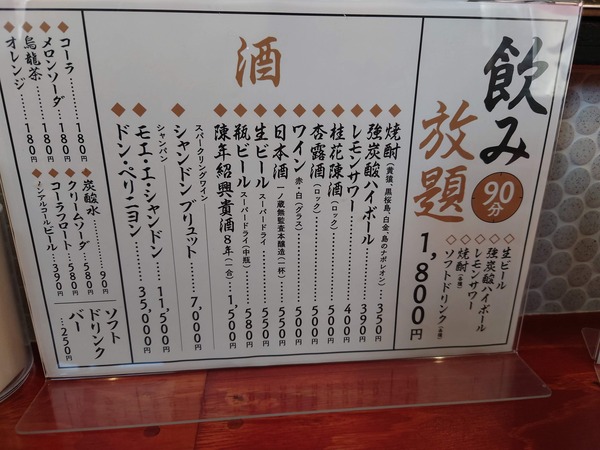 飲み放題
90分
1,800円
◇生ビール
◇強炭酸ハイボール
◇レモンサワー
◇焼酎(各種)
◇ソフトドリンク(各種)
酒
◆焼酎(黄猿、黒桜島、白金、島のナポレオン)…350円
◆強炭酸ハイボール…390円
◆レモンサワー…400円
◆桂花陳酒(ロック)…500円
◆杏露酒(ロック)…500円
◆ワイン 赤・白(グラス)…500円
◆日本酒 一ノ蔵無監査本醸造(一杯)…550円
◆生ビール スーパードライ…550円
◆瓶ビール スーパードライ(中瓶)…580円
◆陳年紹興貴酒8年(一合)…1,500円
スパークリングワイン
◆シャンドン ブリュット…7,000円
シャンパン
◆モエ・エ・シャンドン…11,500円
◆ドン・ペリニヨン…35,000円
◆コーラ…180円
◆メロンソーダ…180円
◆烏龍茶…180円
◆オレンジ…180円
◆炭酸水…90円
◆クリームソーダ…580円
◆コーラフロート…580円
◆ノンアルコールビール…390円
ソフトドリンクバー…250円